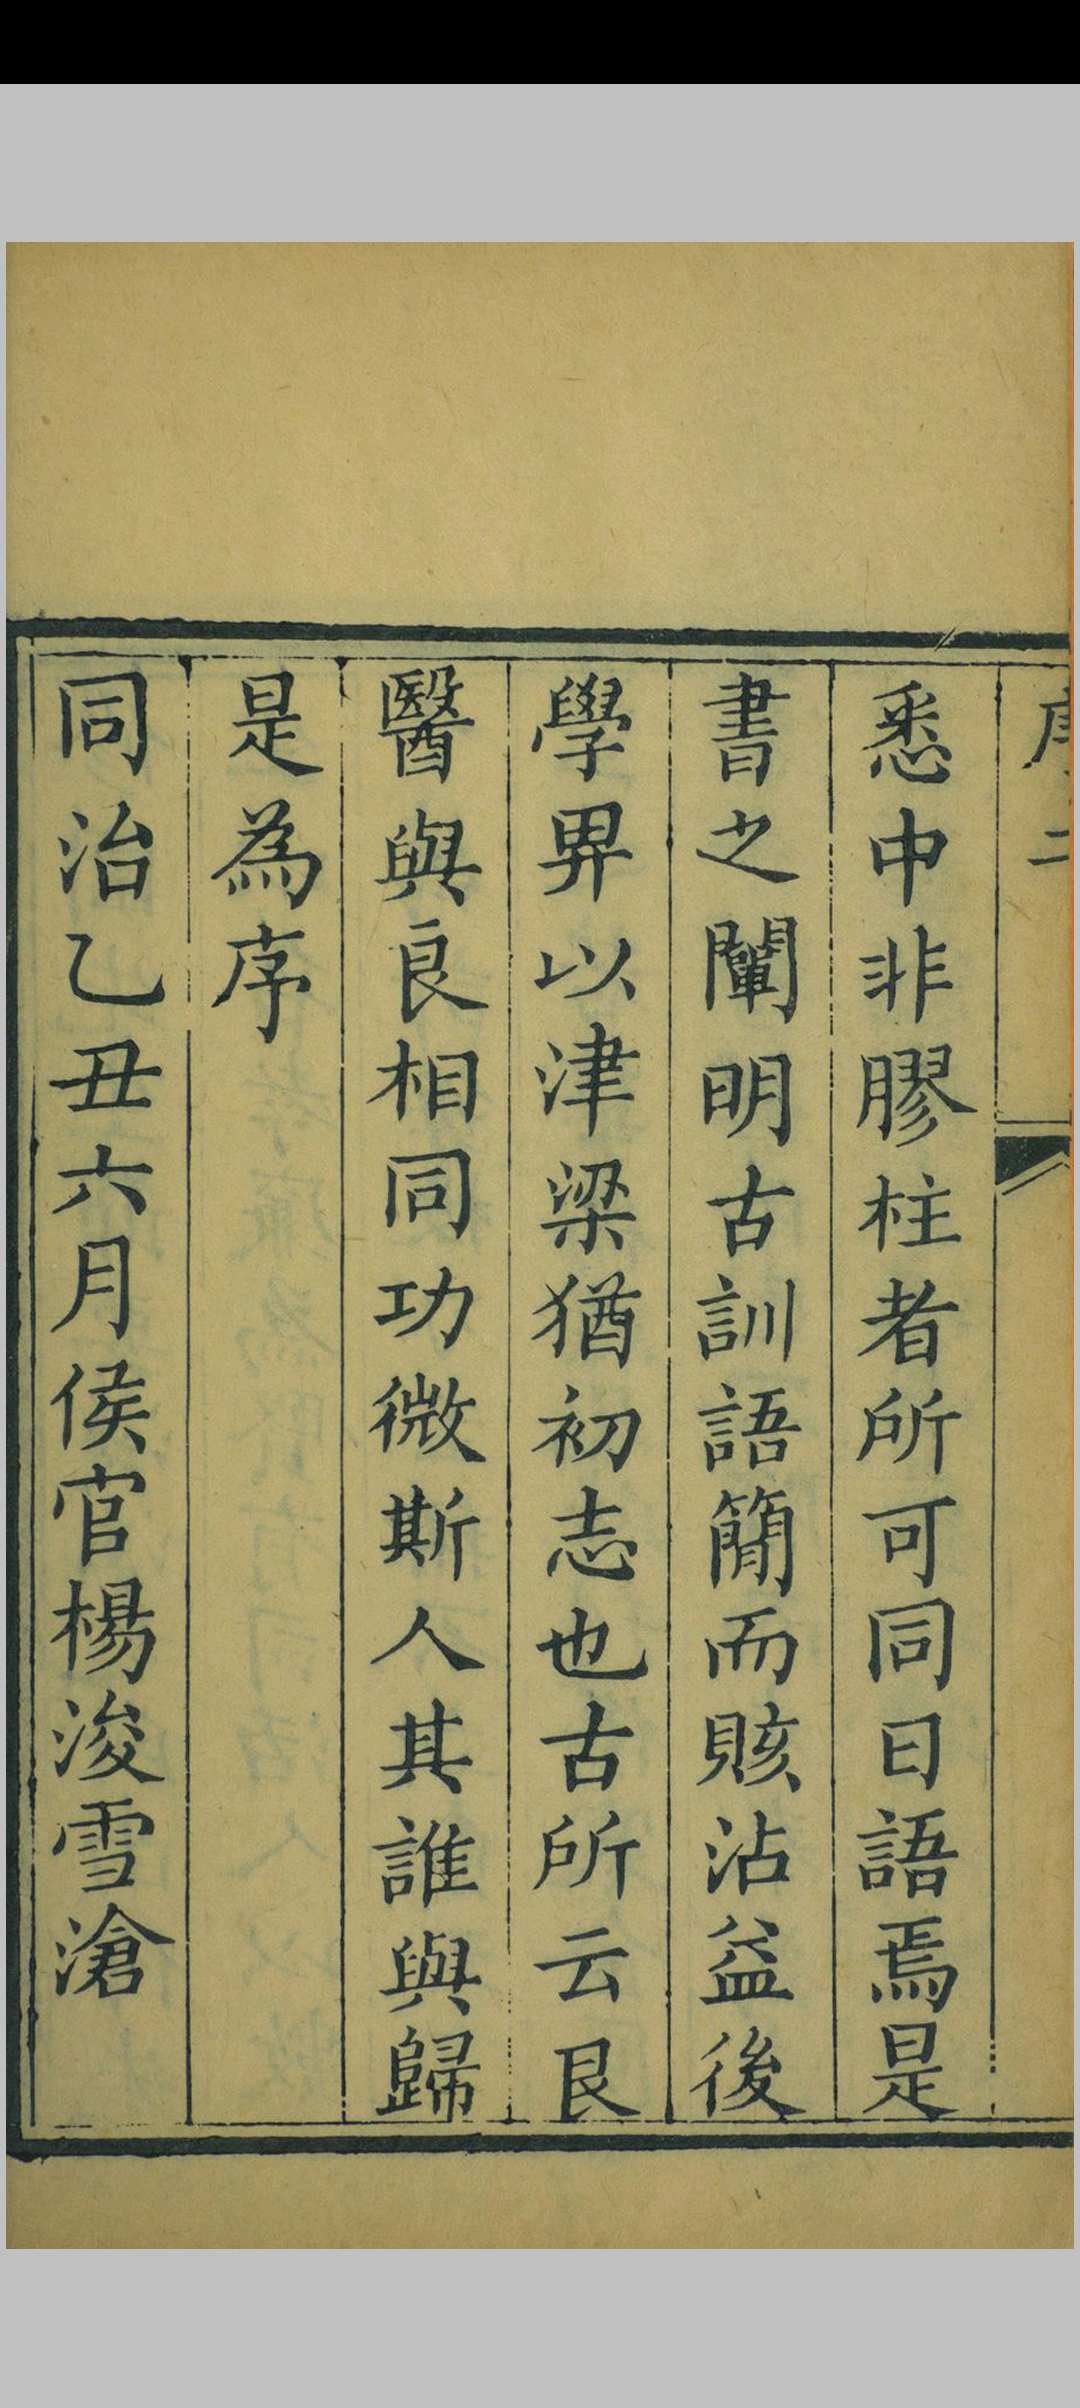 序 二
悉中非膠柱者所可同日語焉是
書之闡明古訓語簡而賅沾益後
學畀以津梁猶初志也古所云良
醫與良相同功微斯人其誰與歸
是為序
同治乙丑六月侯官楊浚雪滄